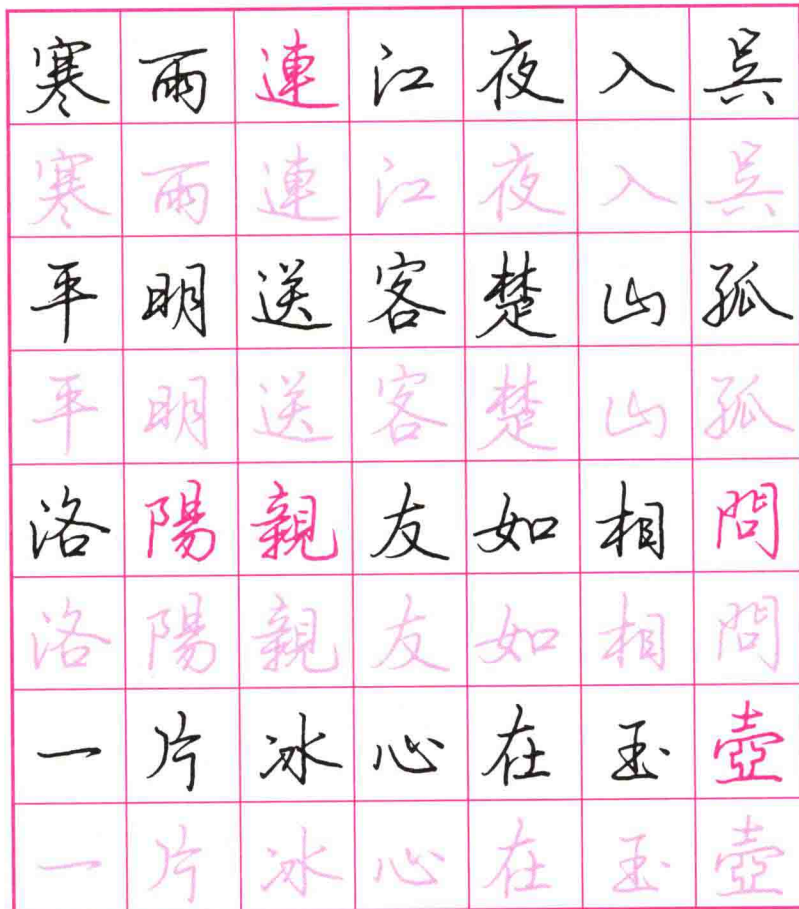 寒雨連江夜入吳
寒雨連江夜入吳
平明送客楚山孤
平明送客楚山孤
洛陽親友如相問
洛陽親友如相問
一片冰心在玉壺
一片冰心在玉壺